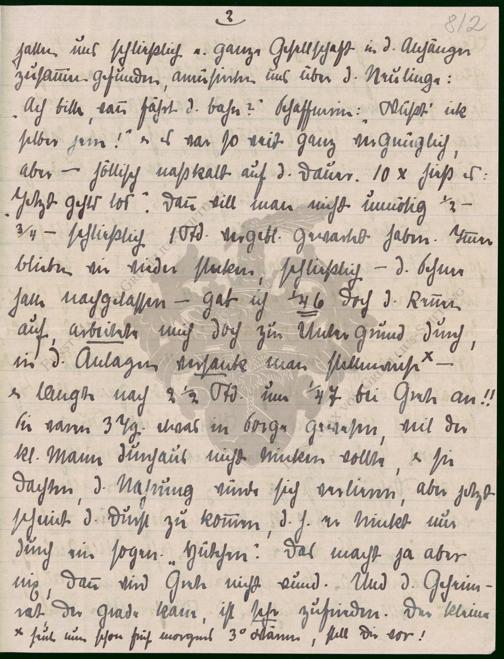 2
812
hatten uns schließlich e. ganze Gesellschaft in d. Anhänger
zusammengefunden, amüsierten uns über d. Neulinge:
"Ach bitte, wann fährt d. Bahn?" Schaffnerin: "Wüßt' ick
selber jern!" u. es war so weit ganz vergnüglich,
aber – höllisch naßkalt auf d. Dauer. 10 x hieß es:
"Jetzt gehts los". Dann will man nicht unnötig ½ –
¾ – schließlich 1 Std. vergebl. gewartet haben. Immer
blieben wir wieder stecken, schließlich – d. Schnee
hatte nachgelassen – gab ich ¼ 6 doch d. Rennen
auf, arbeitete mich doch zur Untergrund durch,
in d. Anlagen versank man stellenweise x –
u. langte nach 2 ½ Std. um ¼ 7 bei Grete an!!
Sie waren 3 Tg. etwas in Sorge gewesen, weil der
kl. Mann durchaus nicht trinken wollte, u. sie
dachten, d. Nahrung würde sich verlieren, aber jetzt
scheint d. Durst zu kommen, d. h. er trinkt nur
durch ein sogen. "Hütchen". Das macht ja aber
nix, dann wird Grete nicht wund. Und d. Geheim-
rat der grade kam, ist sehr zufrieden. Der kleine
x heut nun schon früh morgens 3° Wärme, stell Dir vor!